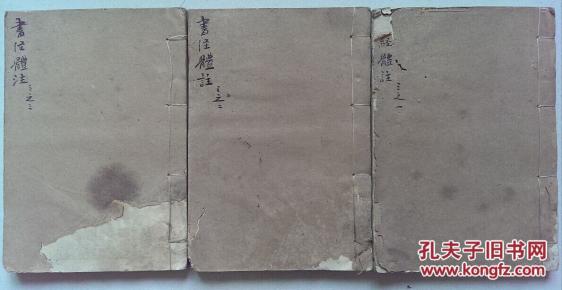 書径體注
三之三
書径體註
三之二
經體註
三之一
孔夫子旧书网
www.kongfz.com